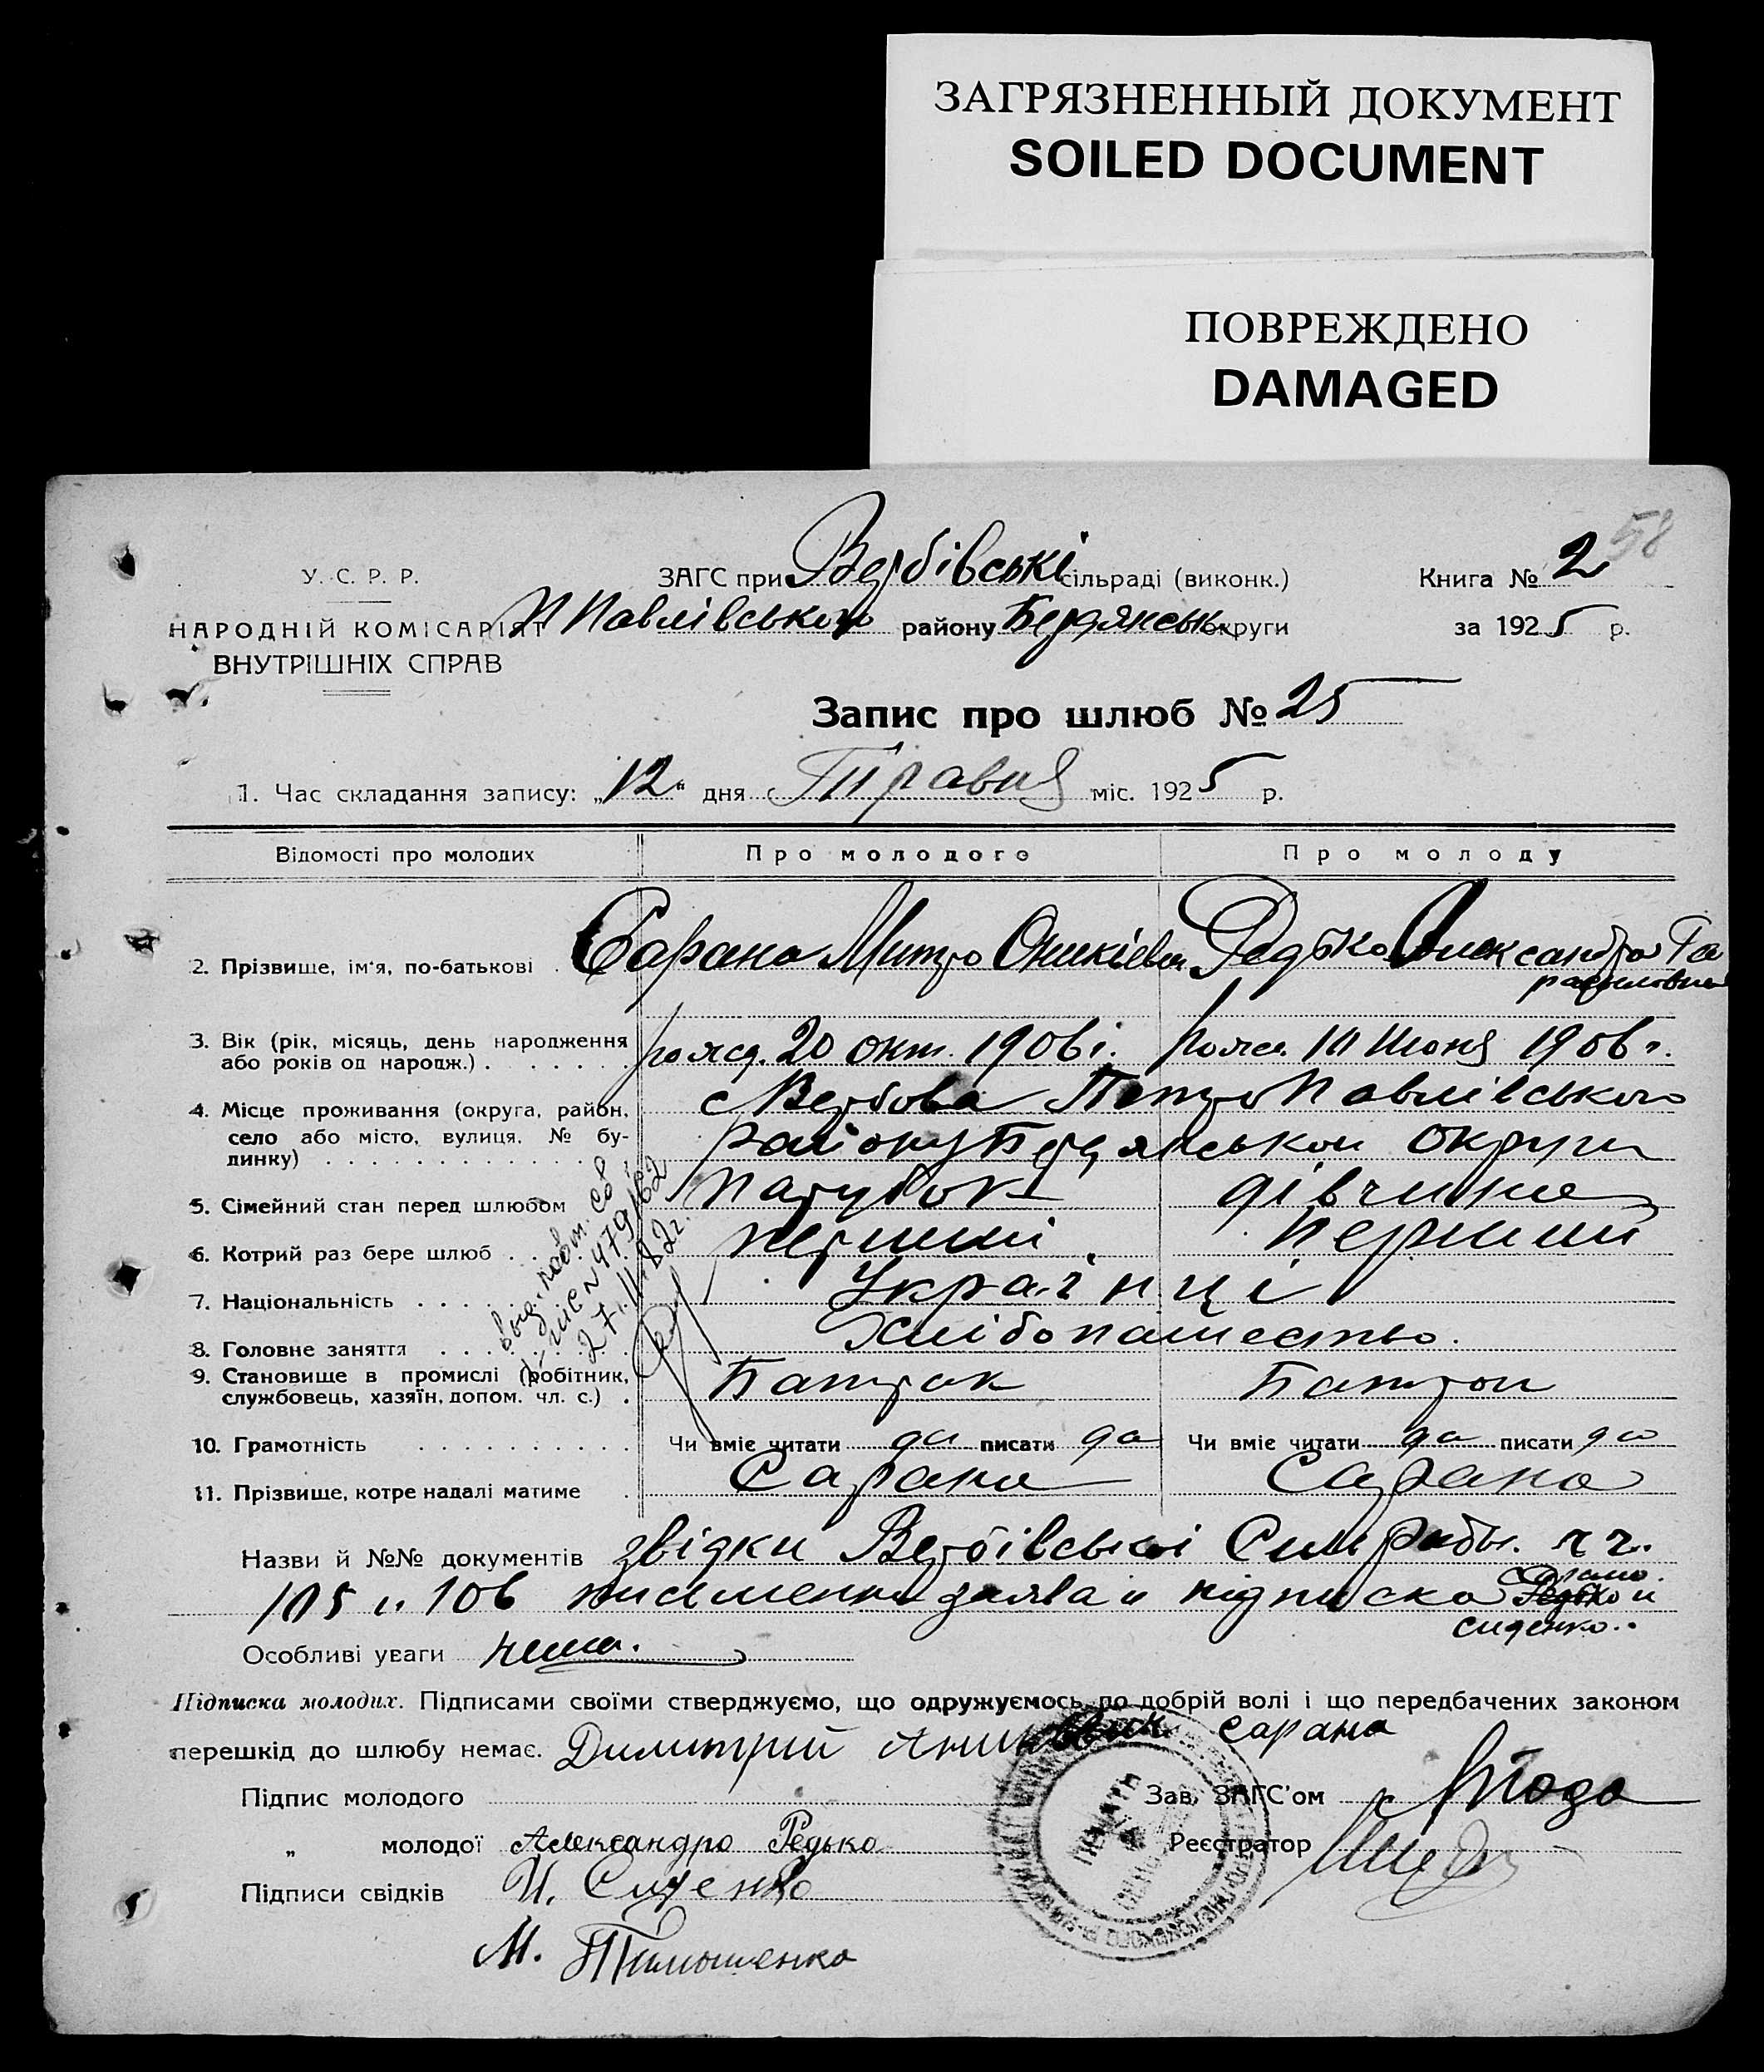 ЗАГРЯЗНЕННЫЙ ДОКУМЕНТ
SOILED DOCUMENT
ПОВРЕЖДЕНО
DAMAGED
58
У. С. Р. Р.
НАРОДНІЙ КОМІСАРІЯТ
ВНУТРІШНІХ СПРАВ
ЗАГС при Вербівські сільраді (виконк.)
П Павлівського району Бердянськ округи
Книга № 2
за 1925 р.
Запис про шлюб № 25
1. Час складання запису: „12" дня Травня міс. 1925 р.
Відомості про молодих Про молодого Про молоду
2. Прізвище, ім'я, по-батькові Сарана Митро Оникієвич Редько Александра Га
раниловна
3. Вік (рік, місяць, день народження рожд. 20 окт. 1906 г. рожд. 10 Июня 1906 г.
або років од народж.)
4. Місце проживання (округа, район, с Вербова Петро Павлівського
село або місто, вулиця, № бу- району Бердянськои округи
динку)
5. Сімейний стан перед шлюбом парубок дівчина
6. Котрий раз бере шлюб перший перший
7. Національність Українці
8. Головне заняття Хлібопашество.
9. Становище в промислі (робітник, Батрак Батрач
службовець, хазяїн, допом. чл. с.)
10. Грамотність Чи вміє читати да писати да Чи вміє читати да писати да
11. Прізвище, котре надалі матиме Сарана Сарана
выд. повт. св
№ 479/62
27.11.82г.
Назви й №№ документів звідки Вербівської Сильради. чч.
105 и 106 письменни заява и підписка Сарано. Редько и
сиденко..
Особливі уваги нема.
Підписка молодих. Підписами своїми стверджуємо, що одружуємось по добрій волі і що передбачених законом
перешкід до шлюбу немає. Димитрий Аникович Сарана
Підпис молодого
Зав. ЗАГС'ом
„ молодої Александра Редько
Реєстратор
Підписи свідків И. Сиденко
М. Тимошенко
ПЕЧАТЬ